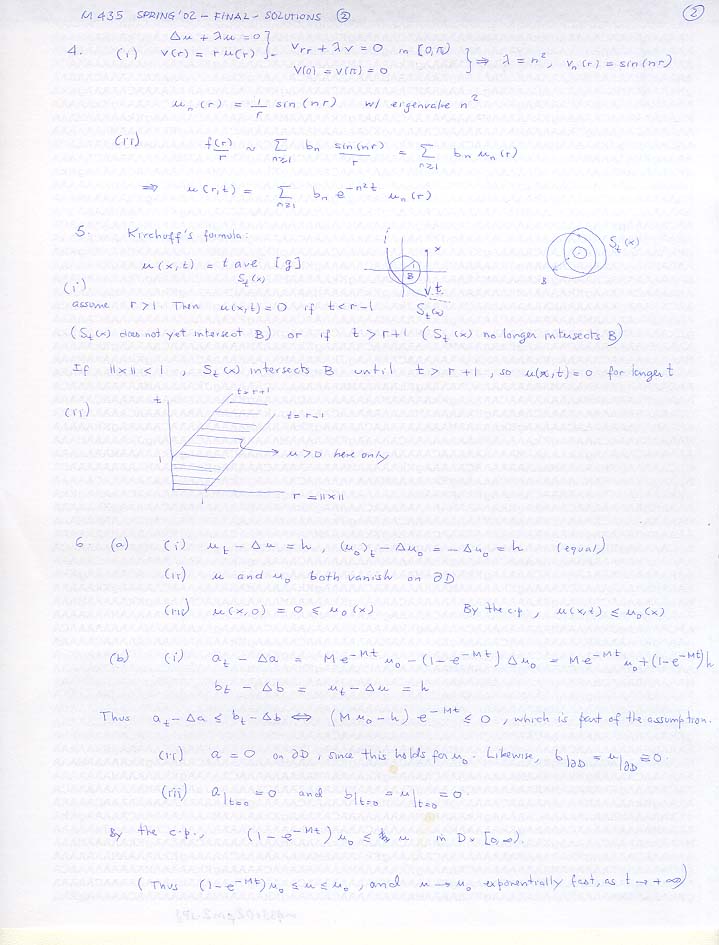 M 435 SPRING '02 - FINAL - SOLUTIONS ②
②
Δu + λu = 0
4. (i) v(r) = r u(r) } - v_rr + λv = 0 in [0,π) } ⇒ λ = n², v_n(r) = sin(nr)
v(0) = v(π) = 0
u_n(r) = 1/r sin(nr) w/ eigenvalue n²
(ii) f(r)/r ~ Σ_{n≥1} b_n sin(nr)/r = Σ_{n≥1} b_n u_n(r)
⇒ u(r,t) = Σ_{n≥1} b_n e^{-n²t} u_n(r)
5. Kirchoff's formula:
u(x,t) = t ave_{S_t(x)} [g]
x
B
t
S_t(x)
S_t(x)
B
(i)
assume r>1. Then u(x,t) = 0 if t < r-1
(S_t(x) does not yet intersect B) or if t > r+1 (S_t(x) no longer intersects B)
If ||x|| < 1, S_t(x) intersects B until t > r+1, so u(x,t) = 0 for longer t
(ii) t
t = r+1
t = r-1
1
u>0 here only
1
r = ||x||
6. (a) (i) u_t - Δu = h, (u_0)_t - Δu_0 = -Δu_0 = h (equal)
(ii) u and u_0 both vanish on ∂D
(iii) u(x,0) = 0 ≤ u_0(x) By the c.p, u(x,t) ≤ u_0(x)
(b) (i) a_t - Δa = M e^{-Mt} u_0 - (1-e^{-Mt}) Δu_0 = M e^{-Mt} u_0 + (1-e^{-Mt})h
b_t - Δb = u_t - Δu = h
Thus a_t - Δa ≤ b_t - Δb ⇔ (M u_0 - h) e^{-Mt} ≤ 0, which is part of the assumption.
(ii) a = 0 on ∂D, since this holds for u_0. Likewise, b|_∂D = u|_∂D = 0.
(iii) a|_{t=0} = 0 and b|_{t=0} = u|_{t=0} = 0.
By the c.p., (1-e^{-Mt}) u_0 ≤ u in D × [0,∞).
(Thus (1-e^{-Mt}) u_0 ≤ u ≤ u_0, and u → u_0 exponentially fast, as t → +∞)